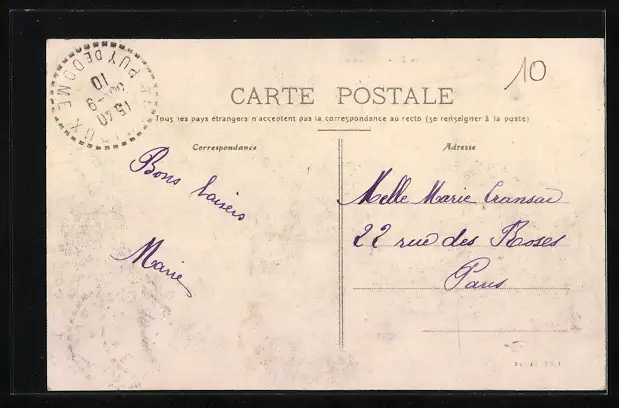 10
CARTE POSTALE
Tous les pays étrangers n'acceptent pas la correspondance au recto (se renseigner à la poste)
Correspondance
Adresse
PUY DE DOME
15 40
10
Bons baisers
Marie
Melle Marie Cransac
22 rue des Roses
Paris